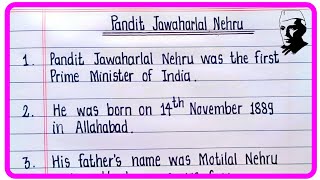 Pandit Jawaharlal Nehru
1. Pandit Jawaharlal Nehru was the first
Prime Minister of India.
2. He was born on 14th November 1889
in Allahabad.
3. His father's name was Motilal Nehru